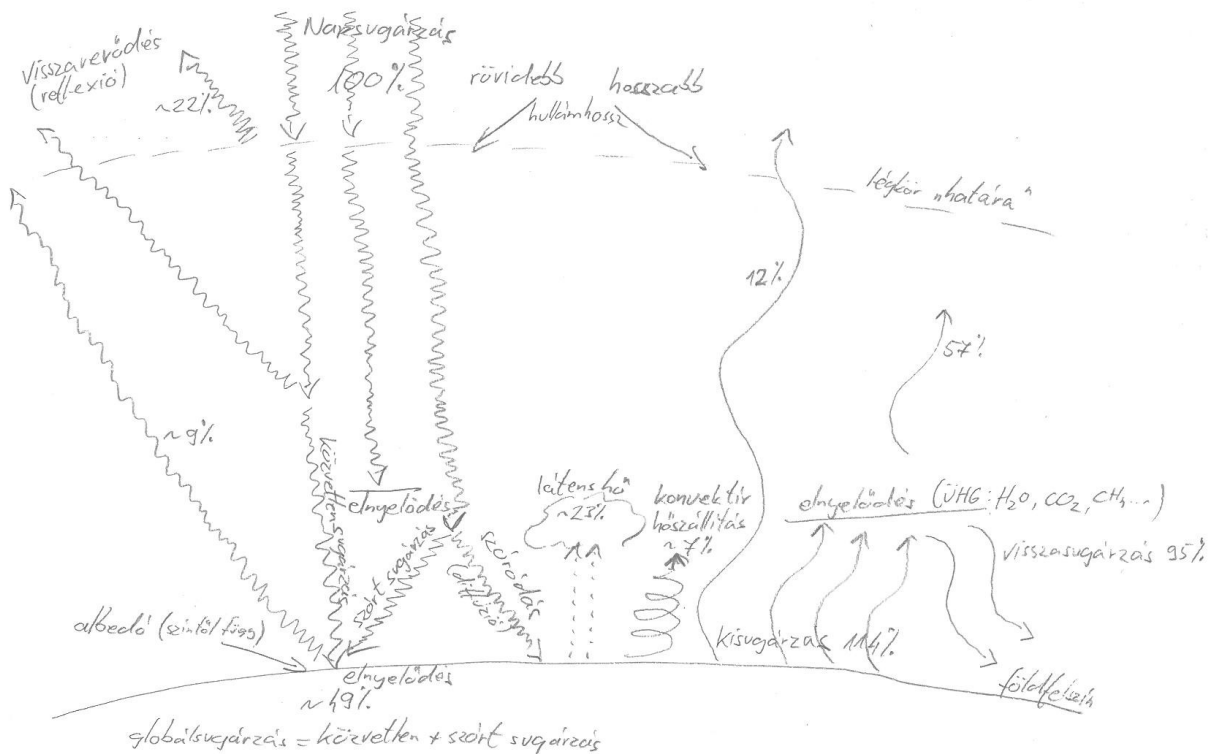 Napsugárzás
100%
visszaverődés
(reflexió)
~22%
rövidebb
hosszabb
hullámhossz
légkör „határa"
12%
57%
~9%
közvetlen sugárzás
elnyelődés
szórt sugárzás
szóródás
(diffúzió)
látens hő
~23%
konvektív
hőszállítás
~7%
elnyelődés (ÜHG: H2O, CO2, CH4...)
visszasugárzás 95%
kisugárzás 114%
albedó (színtől függ)
elnyelődés
~49%
földfelszín
globálsugárzás = közvetlen + szórt sugárzás